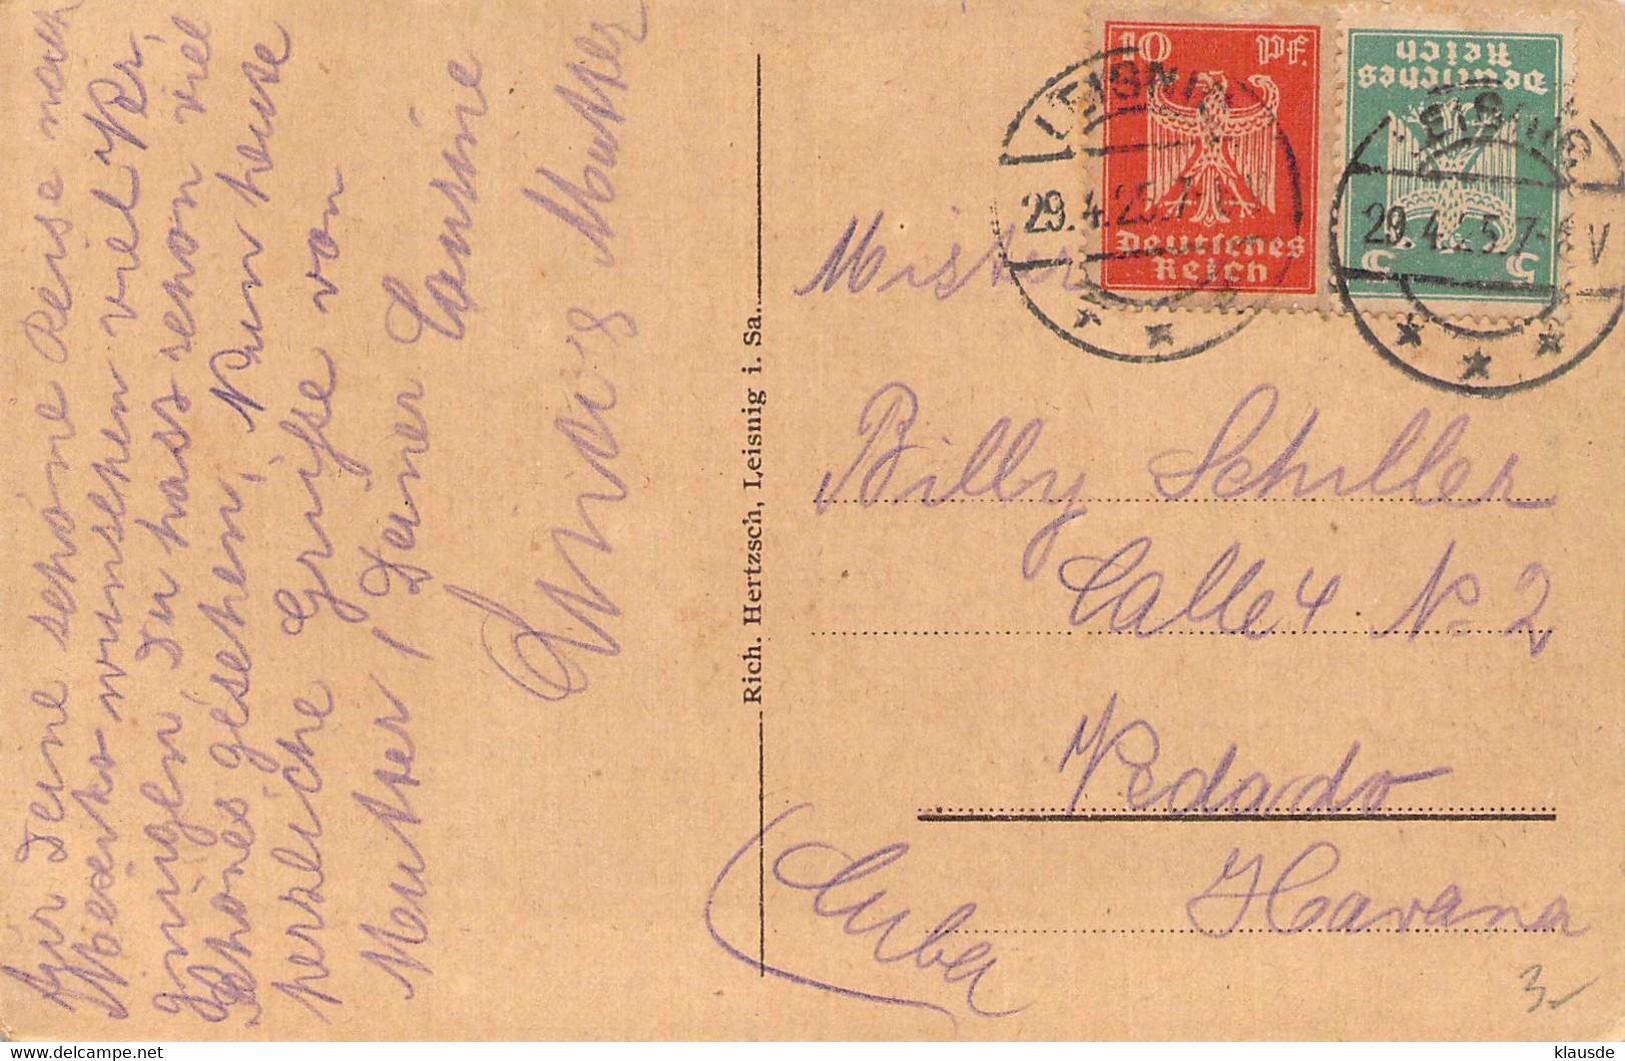 Für Deine schöne Reise nach
wünschen viel Ver,
gnügen, Du hass schon viel
Schönes gesehen, Nun heute
herzliche Grüße von
Mutter, Deiner Cousine
Mutter
Rich. Hertzsch, Leisnig i. Sa.
10 Pf.
Deutsches
Reich
Deutsches
Reich
5 5
LEISNIG
29.4.25.7-8V
LEISNIG
29.4.25.7-8V
Mister
Billy Schiller
Calle 4 No 2
Vedado
Havana
(Cuba
3.-
klausde